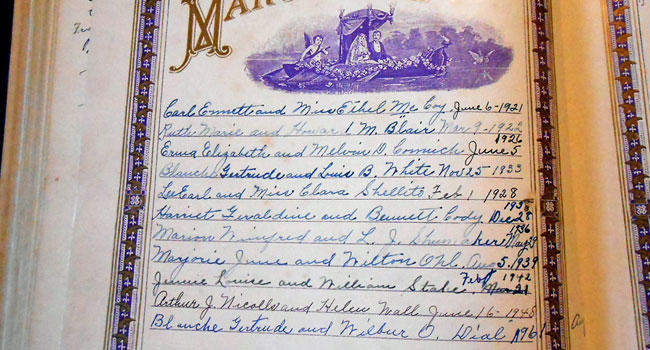 MAR
Carl Emmett and Miss Ethel Mc Coy, June 6-1921
Ruth Marie and Howar 1. M. Blair Mar 9-1922
1926
Erma Elizabeth and Melvin D. Cormick June 5
Blanche Gertrude and Louis B. White Nov 25 1933
Lee Earl and Miss Clara Shellito Feb 1 1928
Harriet Geraldine and Bennett Cody Dec 28
1936
Marion Winifred and L. J. Shumaker May
Marjorie June and Wilton Ohl. Aug 5. 1939
Feb 1942
Jennie Louise and William Stake. Mar 21
Arthur J. Nicolls and Helen Wall June 16-1945
Blanche Gertrude and Wilbur O. Dial 1961